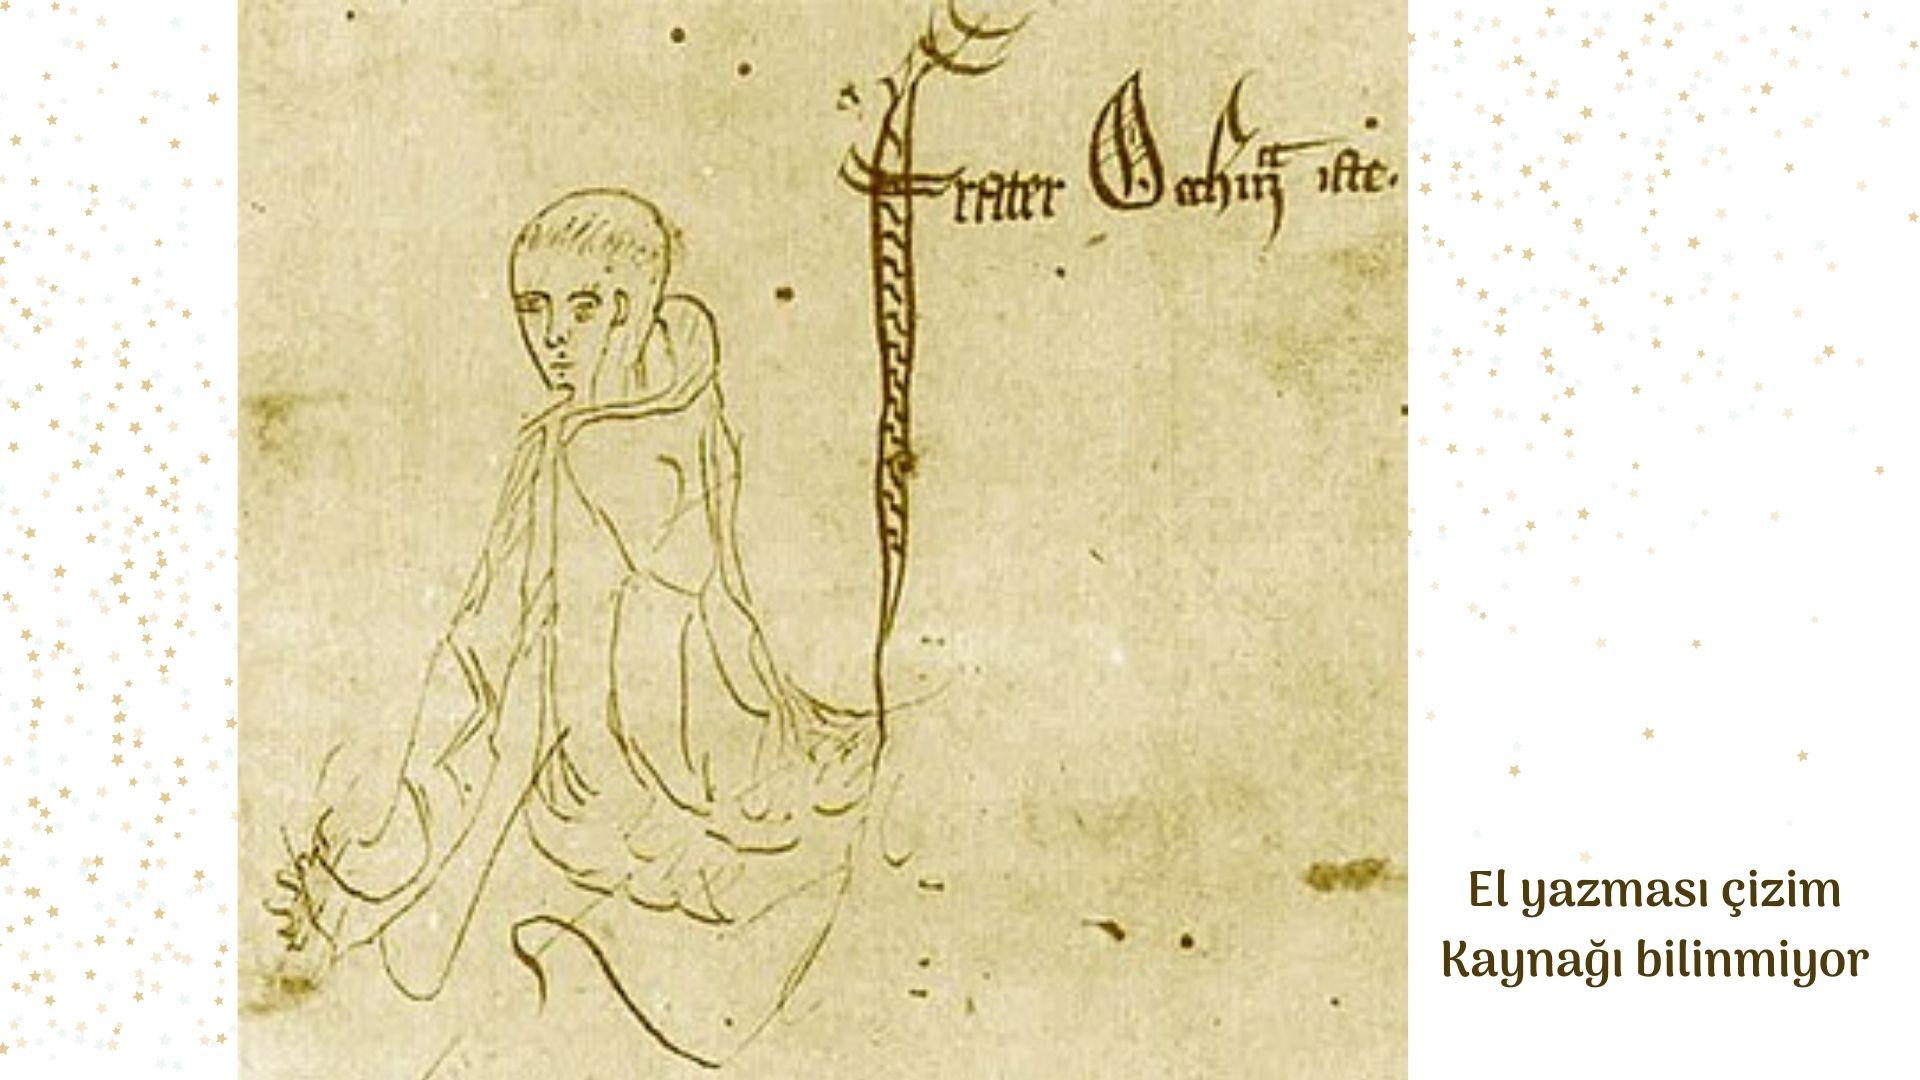 frater Occham iste.
El yazması çizim
Kaynağı bilinmiyor